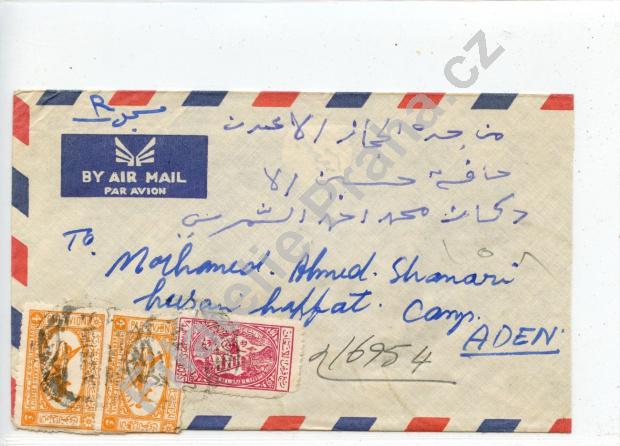 R
مسجل
BY AIR MAIL
PAR AVION
من جدة الحجاز الا عدن
حافة حسين الا
دكان محمد احمد الشمري
To
Mohamed. Ahmed. Shamari
husan haffat. Camp.
ADEN.
١٥٨
216954
Praha.cz